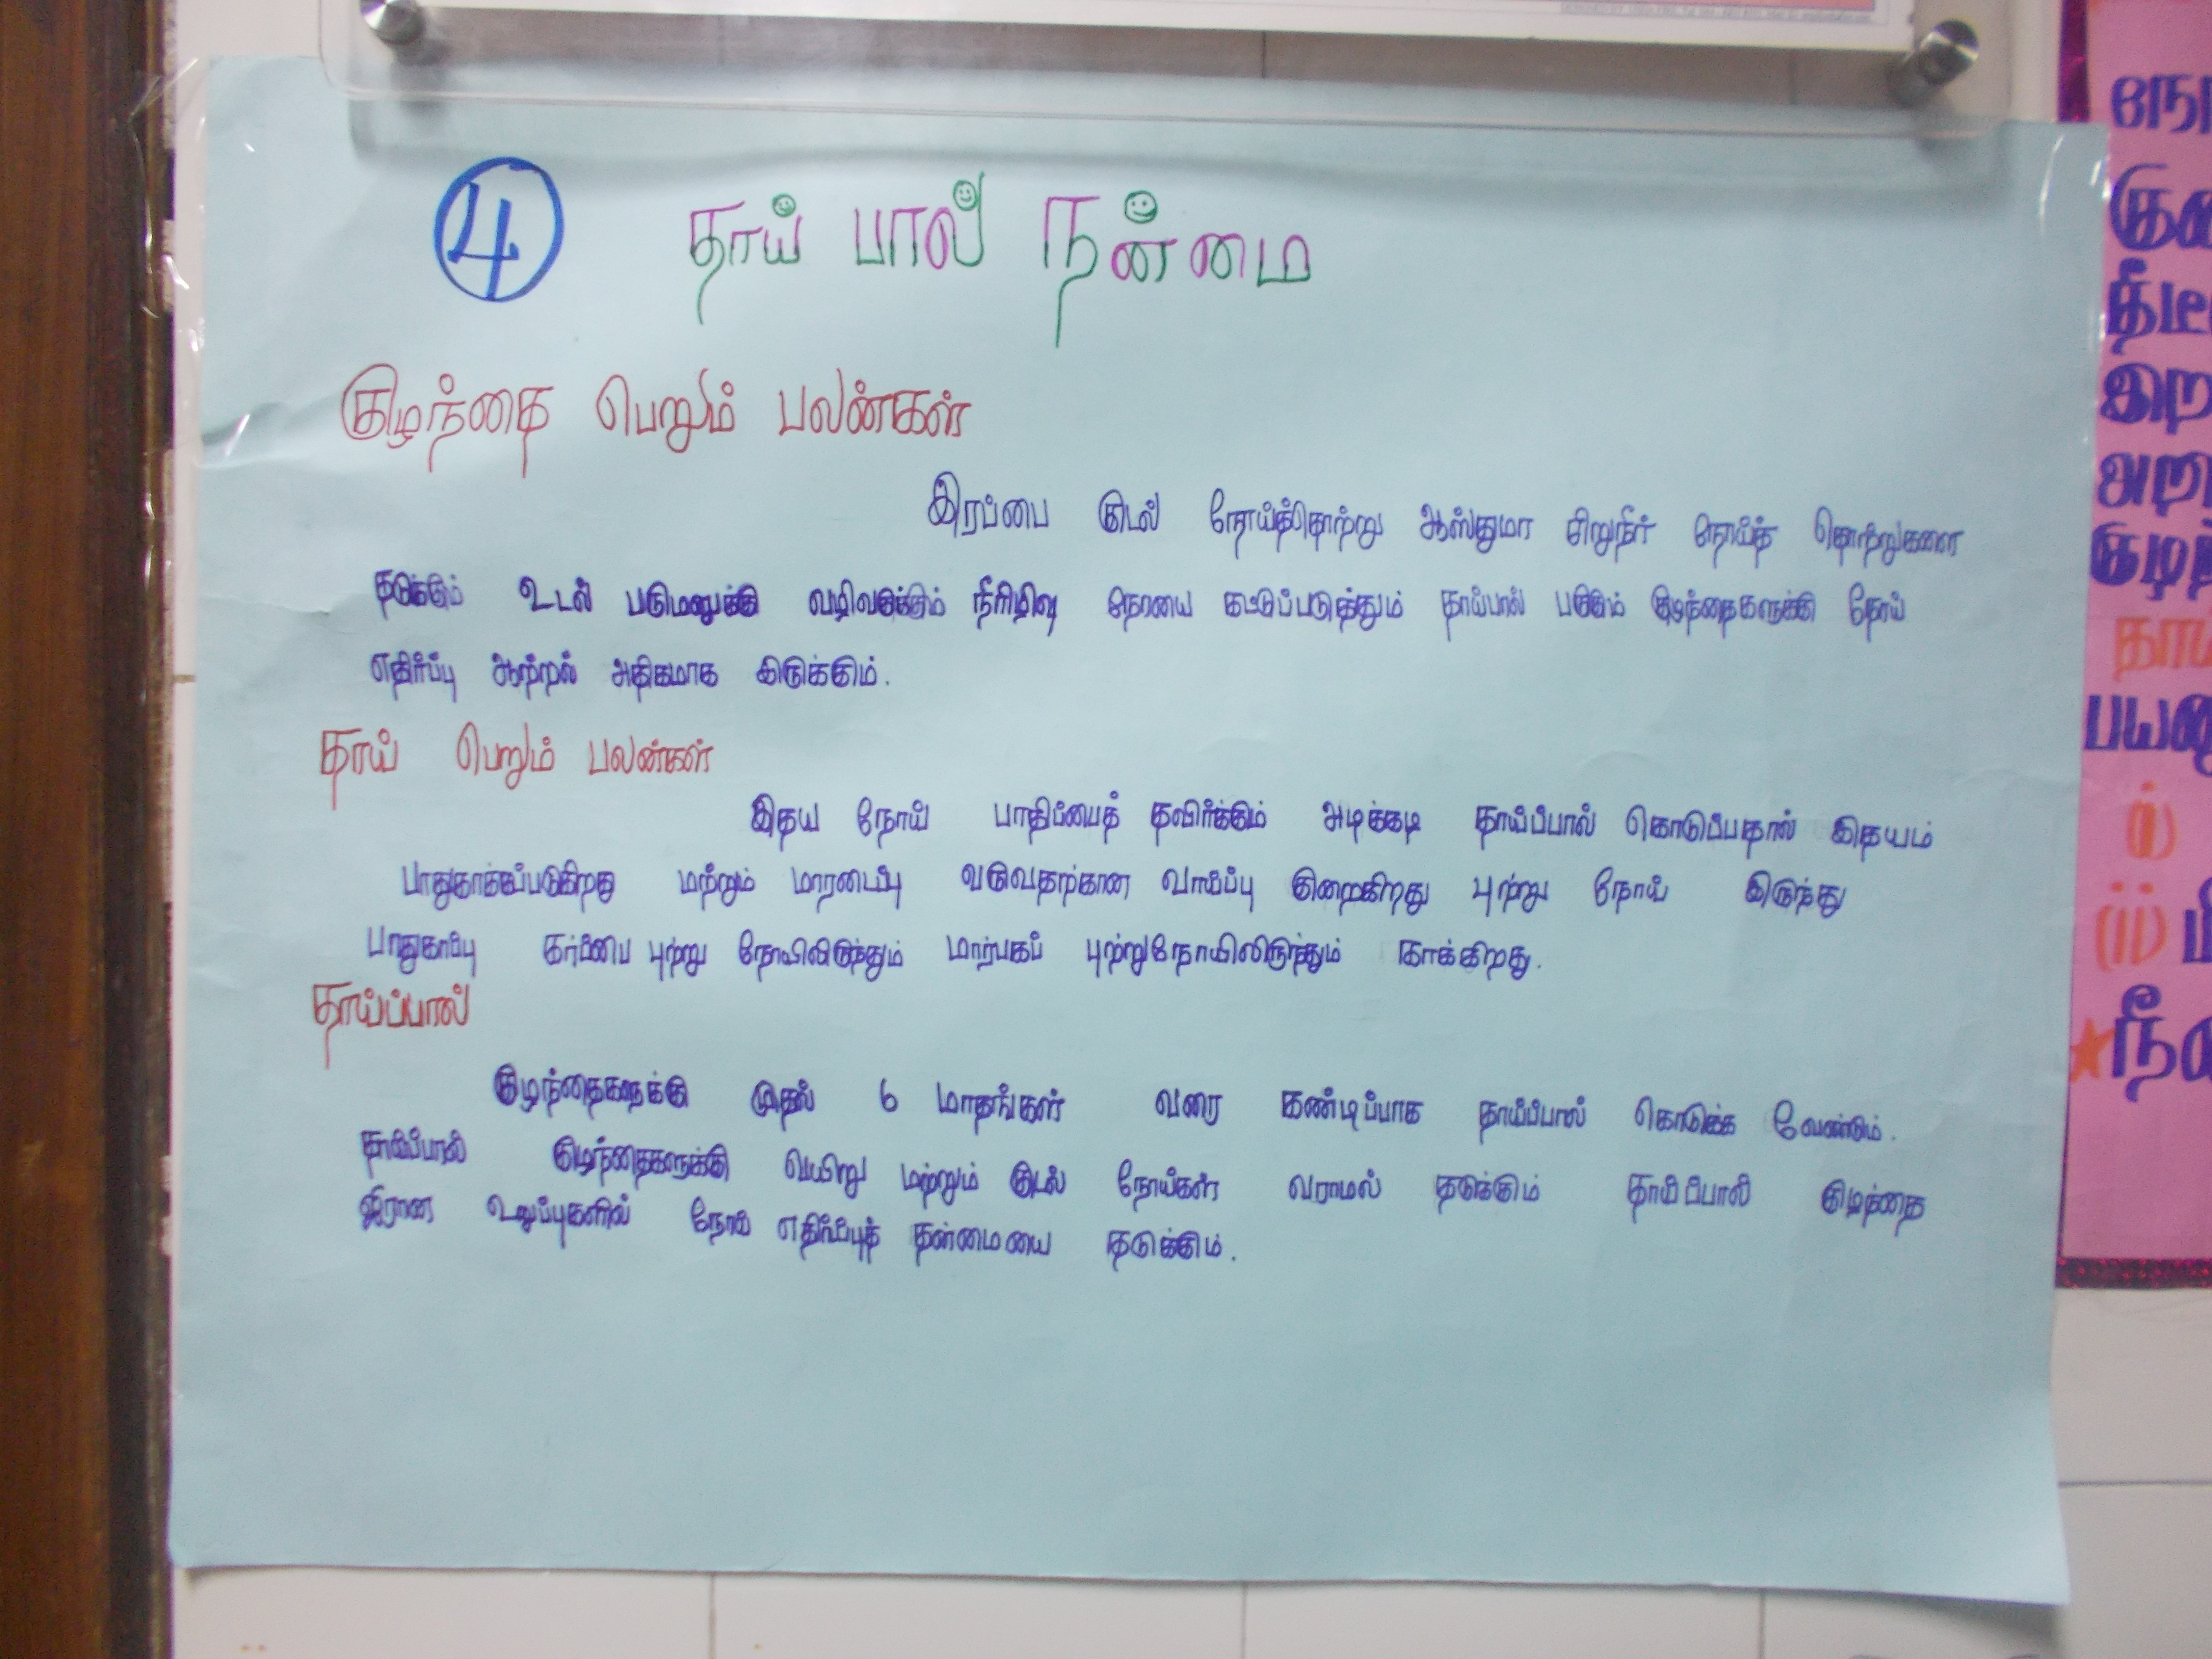 4 தாய் பால் நன்மை
குழந்தை பெறும் பலன்கள்
இரப்பை குடல் நோய்த்தொற்று ஆஸ்துமா சிறுநீர் நோய்த் தொற்றுகளை
தடுக்கும் உடல் பருமனுக்கு வழிவகுக்கும் நீரிழிவு நோயை கட்டுப்படுத்தும் தாய்பால் பருகும் குழந்தைகளுக்கு நோய்
எதிர்ப்பு ஆற்றல் அதிகமாக இருக்கும்.
தாய் பெறும் பலன்கள்
இதய நோய் பாதிப்பைத் தவிர்க்கும் அடிக்கடி தாய்ப்பால் கொடுப்பதால் இதயம்
பாதுகாக்கப்படுகிறது மற்றும் மாரடைப்பு வருவதற்கான வாய்ப்பு குறைகிறது புற்று நோய் இருந்து
பாதுகாப்பு கர்ப்பை புற்று நோயிலிருந்தும் மார்பகப் புற்றுநோயிலிருந்தும் காக்கிறது.
தாய்ப்பால்
குழந்தைகளுக்கு முதல் 6 மாதங்கள் வரை கண்டிப்பாக தாய்ப்பால் கொடுக்க வேண்டும்.
தாய்ப்பால் குழந்தைகளுக்கு வயிறு மற்றும் குடல் நோய்கள் வராமல் தடுக்கும் தாய்ப்பால் குழந்தை
உறுப்புகளில் நோய் எதிர்ப்புத் தன்மையை தடுக்கும்.